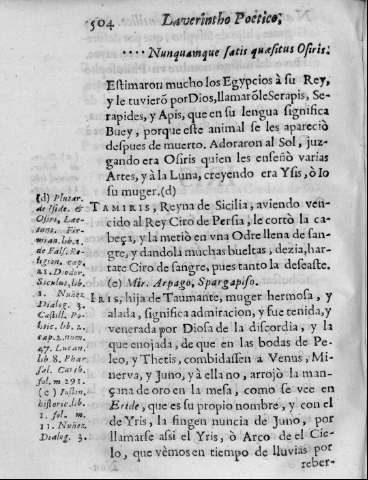 504 Laverintho Poetico;
···· Nunquamque satis quæsitus Osiris.
Estimaron mucho los Egypcios à su Rey,
y le tuvierõ por Dios, llamarõle Serapis, Se-
rapides, y Apis, que en su lengua significa
Buey, porque este animal se les apareciò
despues de muerto. Adoraron al Sol, juz-
gando era Osiris quien les enseñò varias
Artes, y à la Luna, creyendo era Ysis, ò Io
su muger. (d)
TAMIRIS, Reyna de Sicilia, aviendo ven-
cido al Rey Ciro de Persia, le cortò la ca-
beça, y la metiò en vna Odre llena de san-
gre, y dandola muchas bueltas, dezia, har-
tate Ciro de sangre, pues tanto la deseaste.
(e) Mir. Arpago, Spargapiso.
IRIS, hija de Taumante, muger hermosa, y
alada, significa admiracion, y fue tenida, y
venerada por Diosa de la discordia, y la
que enojada, de que en las bodas de Pe-
leo, y Thetis, combidassen a Venus, Mi-
nerva, y Juno, y à ella no, arrojò la man-
çana de oro en la mesa, como se vee en
Eride, que es su propio nombre, y con el
de Yris, la fingen nuncia de Juno, por
llamarse assi el Yris, ò Arco de el Cie-
lo, que vèmos en tiempo de lluvias por
reber-
(d) Plutar.
de Iside. &
Osiri, Lac-
tanc. Fir-
mian. lib. 1.
de Fals. Re-
ligion. cap.
21. Diodor.
Siculus, lib.
1. Nuñez
Dialog. 3.
Castill. Po-
litic. lib. 2.
cap. 2. num.
47. Lucan.
lib. 8. Phar
sal. Carth.
fol. m 291.
(e) Justin.
historic. lib.
1. fol. m.
11. Nuñez.
Dialog. 3.